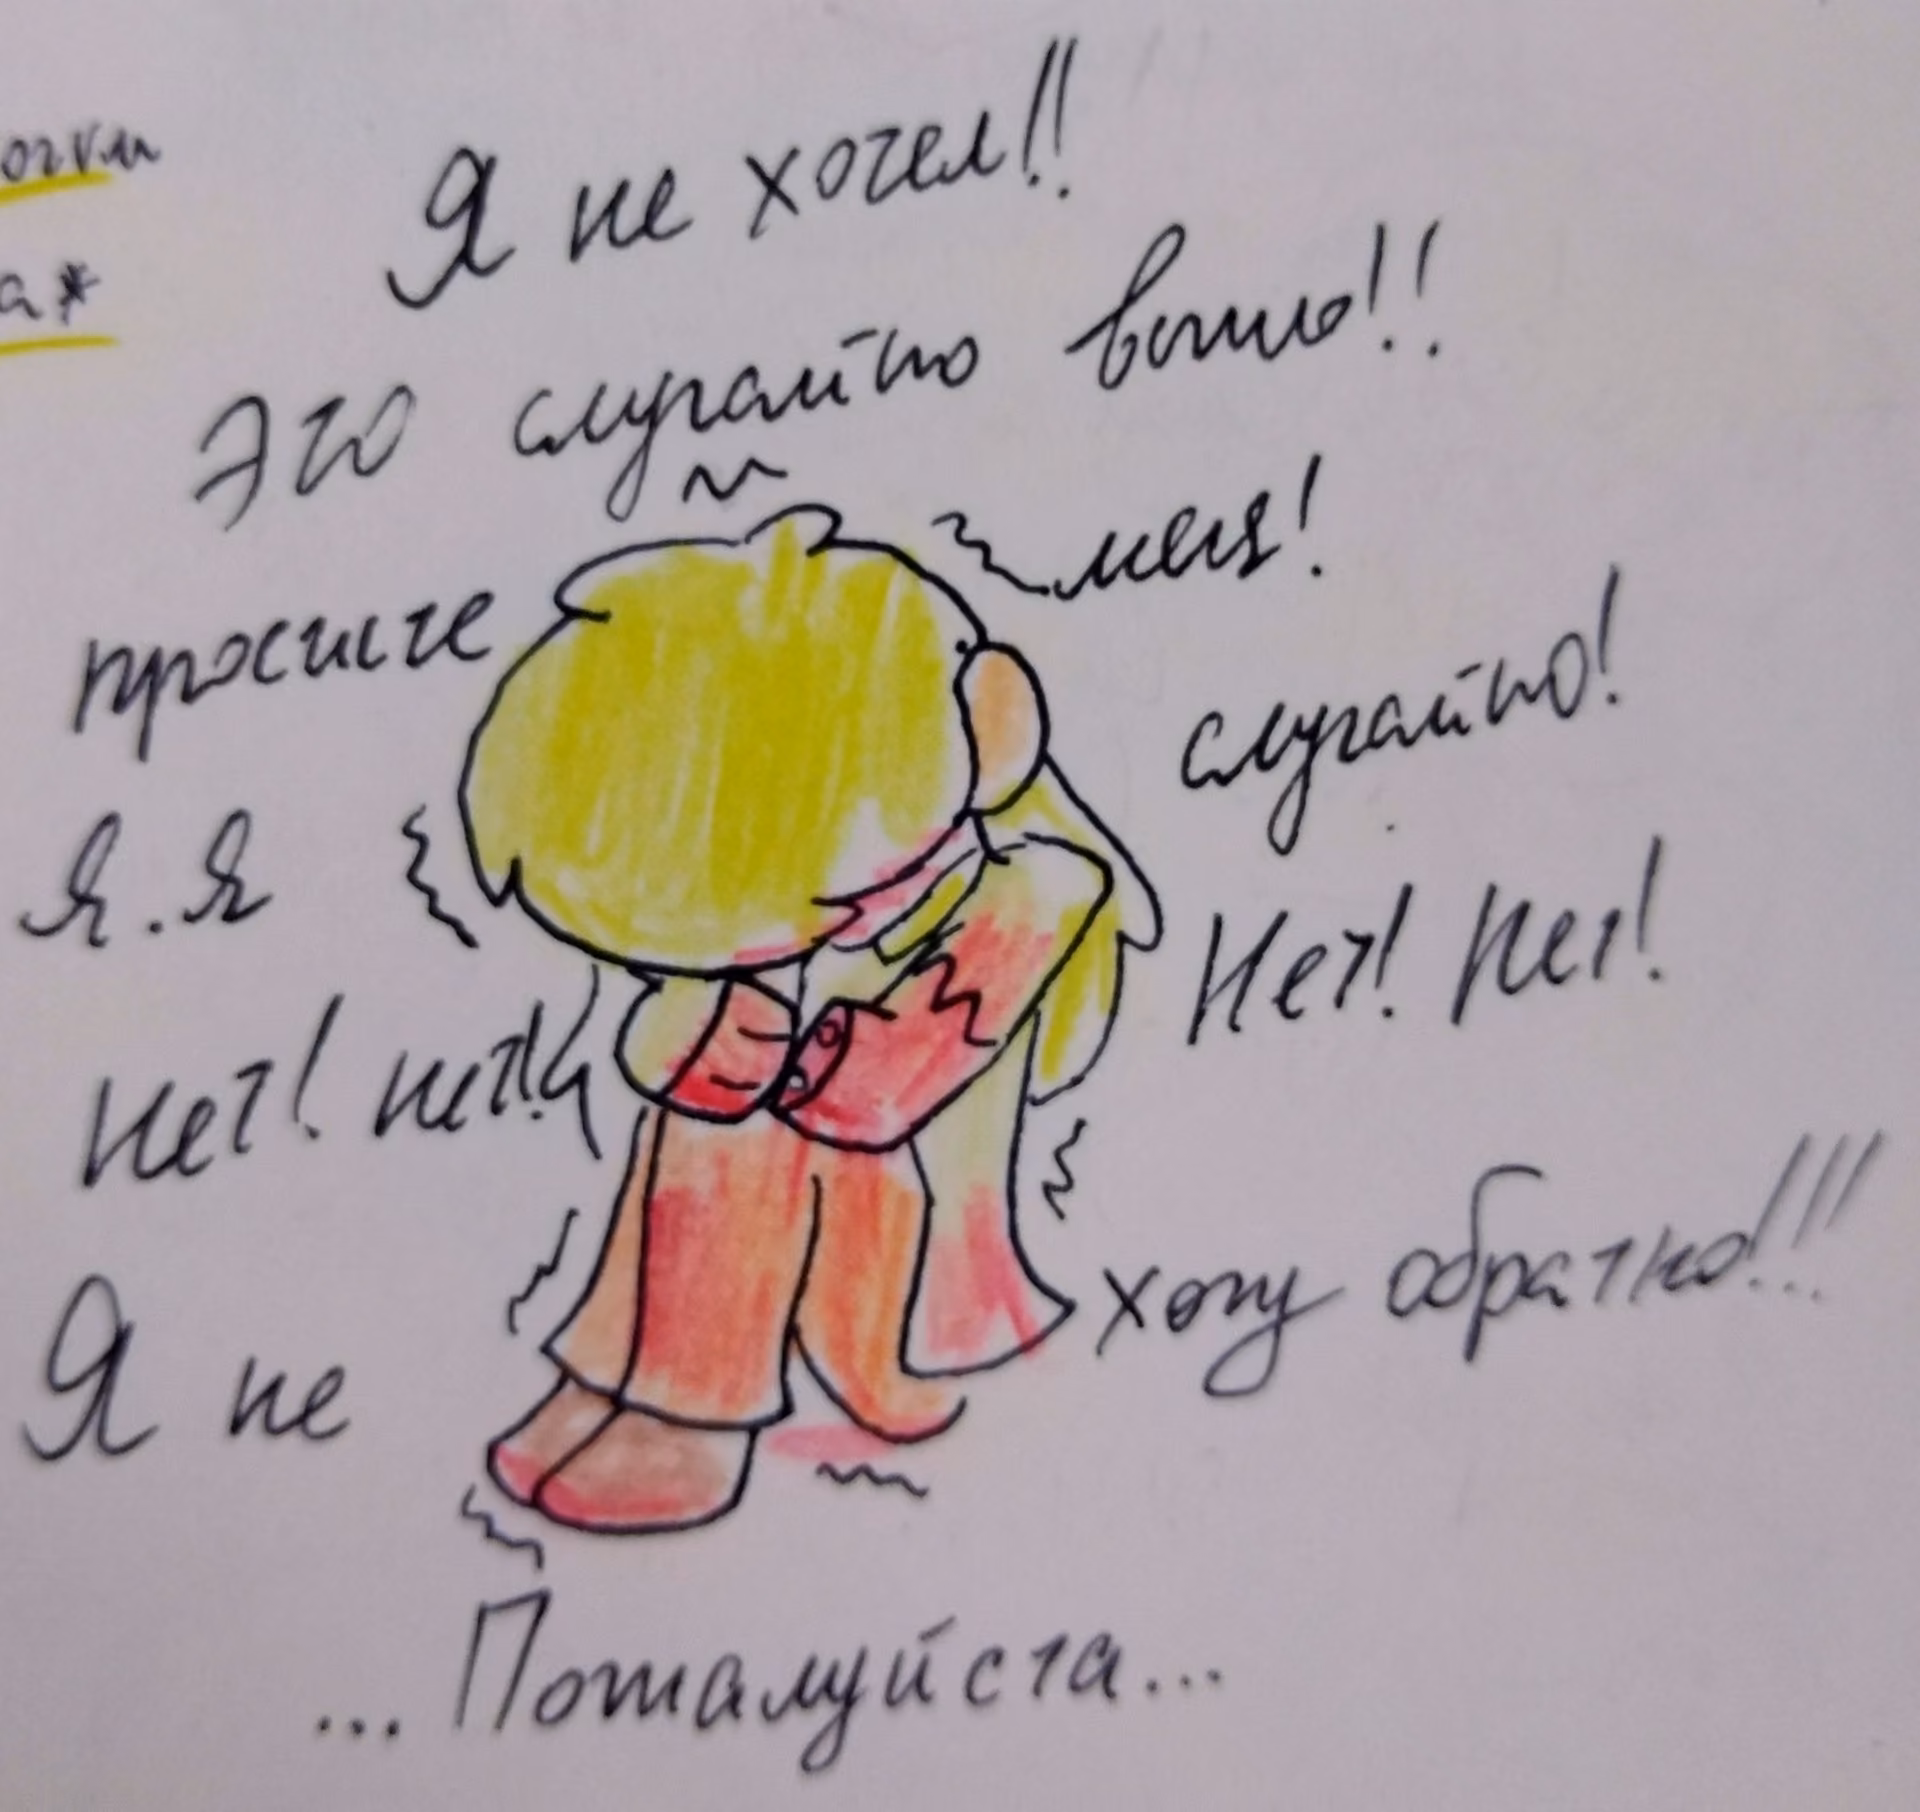 Я не хотел!!
Это случайно вышло!!
простите меня!
Я.Я случайно!
Нет! нет! Нет! Нет!
Я не хочу обратно!!!
...Пожалуйста...